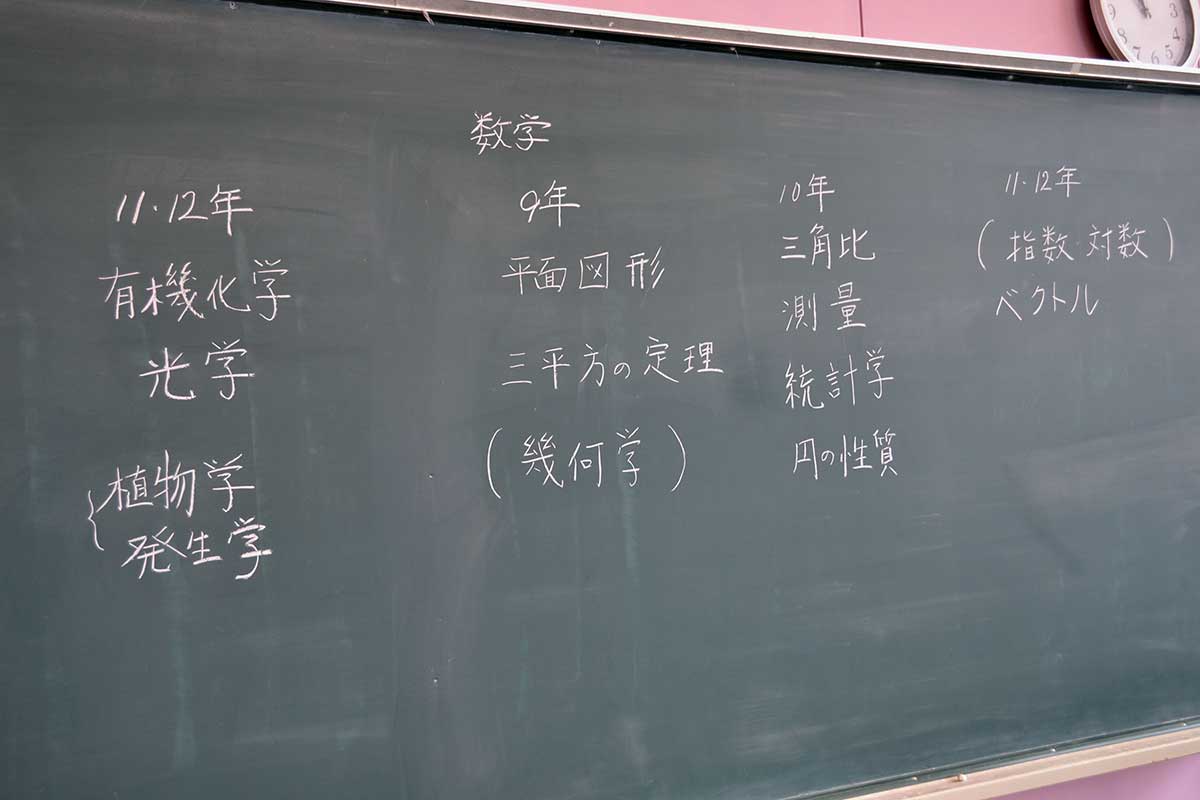 11・12年
有機化学
光学
植物学
発生学
数学
9年
平面図形
三平方の定理
(幾何学)
10年
三角比
測量
統計学
円の性質
11・12年
(指数・対数)
ベクトル